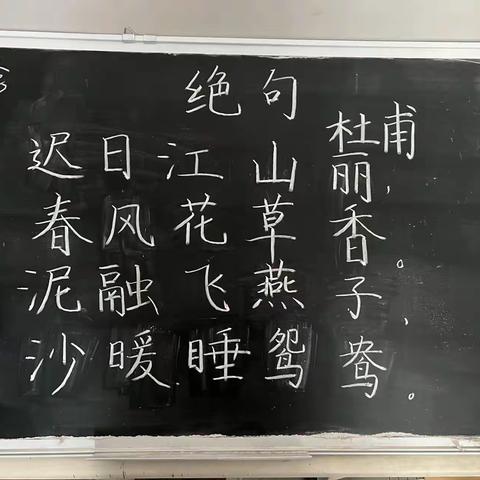 绝句
杜甫
迟日江山丽，
春风花草香。
泥融飞燕子，
沙暖睡鸳鸯。